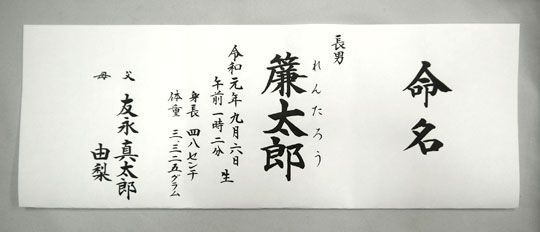 命名
れんたろう
簾太郎
長男
令和元年九月六日 生
午前一時二分
身長 四八センチ
体重 三、三二五グラム
父 友永 真太郎
母 由梨